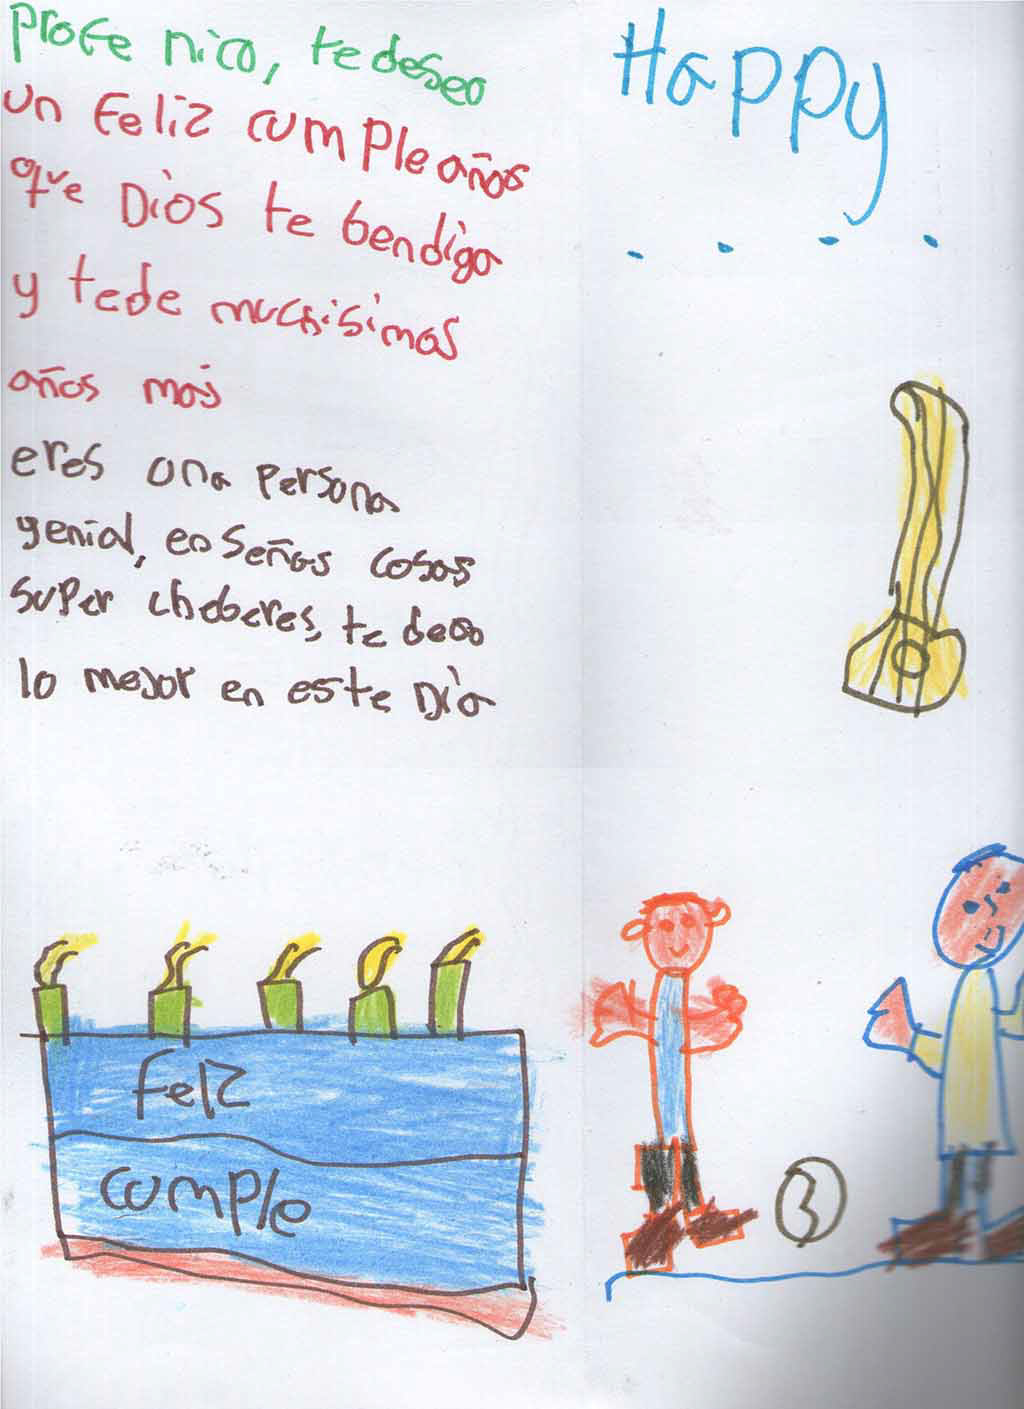 profe nico, te deseo
un feliz cumpleaños
que Dios te bendiga
y te de muchisimos
años más
eres una persona
genial, enseñas cosas
super choberes, te deso
lo mejor en este Día
Happy
. . . .
feliz
cumple